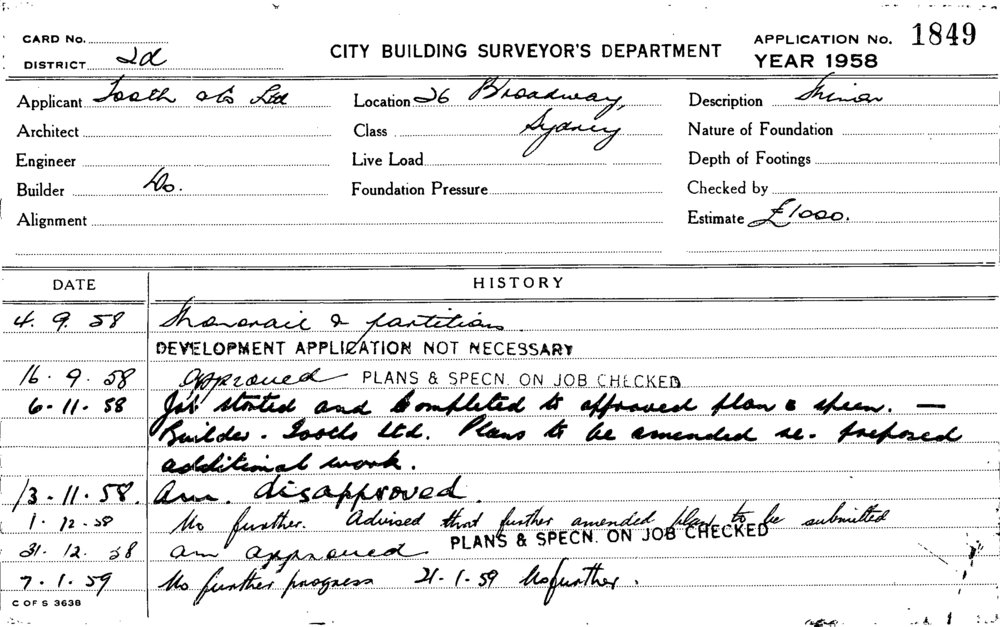 CARD No.
DISTRICT 2d
CITY BUILDING SURVEYOR'S DEPARTMENT
APPLICATION No. 1849
YEAR 1958
Applicant Tooth & Co Ltd Location 26 Broadway, Description
Architect Class Sydney Nature of Foundation
Engineer Live Load Depth of Footings
Builder Do. Foundation Pressure Checked by
Alignment Estimate £1000.
DATE HISTORY
4. 9. 58 & partition
DEVELOPMENT APPLICATION NOT NECESSARY
16. 9. 58 Approved PLANS & SPECN. ON JOB CHECKED
6. 11. 58 Job started and completed to approved plan & specn. —
Builder. Tooths Ltd. Plans to be amended re. proposed
additional work.
13. 11. 58. Am. disapproved.
1. 12. 58 No further. Advised that further amended plan to be submitted
31. 12. 58 Am approved PLANS & SPECN. ON JOB CHECKED
7. 1. 59 No further progress 21. 1. 59 No further.
C OF S 3638